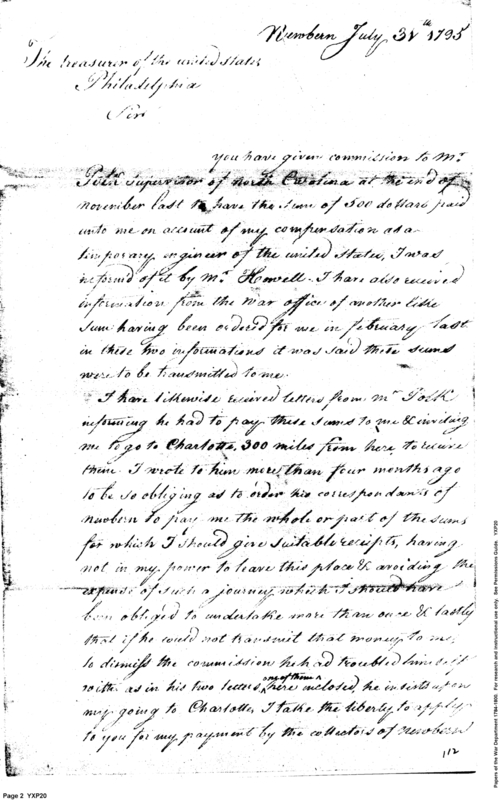 Newbern July 31th 1795
The treasurer of the united states
Philadelphia
Sir
you have given commission to Mr.
Polk supervisor of north Carolina at the end of
november last to have the sum of 300 dollars paid
unto me on account of my compensation as a
temporary engineer of the united states, I was
informd of it by Mr. Howell. I have also received
information from the war office of another like
sum having been ordered for me in february last
in these two informations it was said these sums
were to be transmitted to me.
I have likewise recived letters from Mr Polk
informing he had to pay these sums to me & inviting
me to go to Charlotte, 300 miles from here to receive
them. I wrote to him more than four months ago
to be so obliging as to order his correspondants of
newbern to pay me the whole or part of the sums
for which I should give suitable receipts, having
not in my power to leave this place & avoiding the
expense of such a journey which I should have
been obliged to undertake more than once & lastly
that if he could not transmit that money to me,
to dismiss the commission he had troubled himself
with. as in his two letters, one of them here inclosed, he insists upon
my going to Charlotte, I take the liberty to apply
to you for my payment by the collectors of Newbern
112
Page 2 YXP20
Papers of the War Department 1784-1800. For research and instructional use only. See Permissions Guide. YXP20